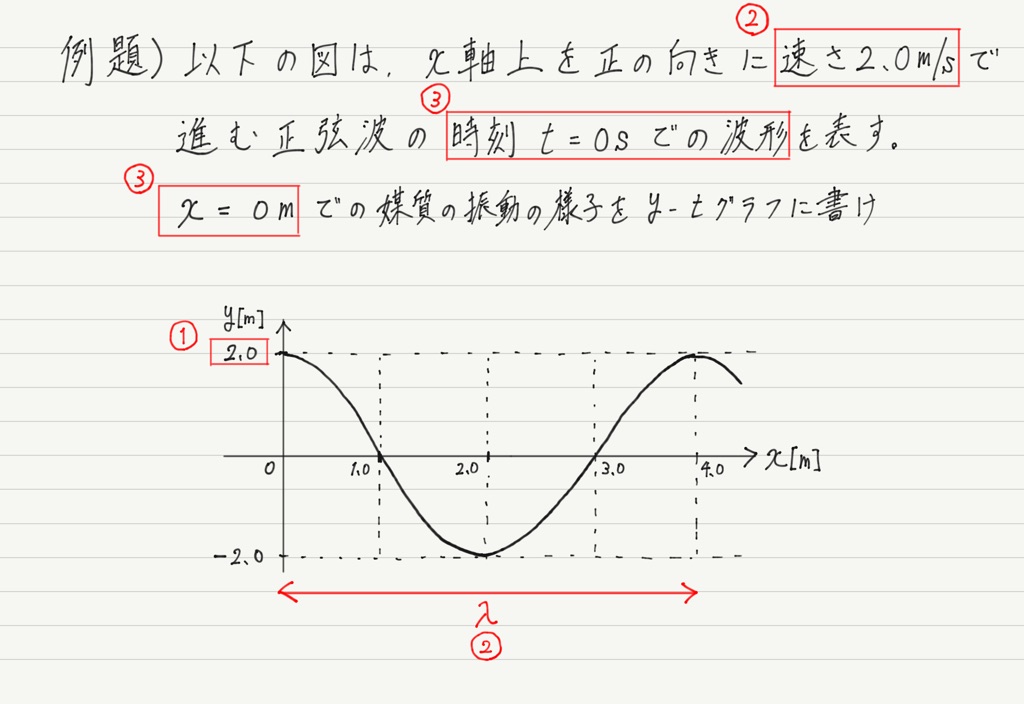 ②
例題) 以下の図は, x軸上を正の向きに速さ2.0m/sで
③
進む正弦波の時刻 t=0sでの波形を表す。
③
x = 0mでの媒質の振動の様子をy-tグラフに書け
y[m]
① 2.0
0 1.0 2.0 3.0 4.0 x[m]
-2.0
λ
②